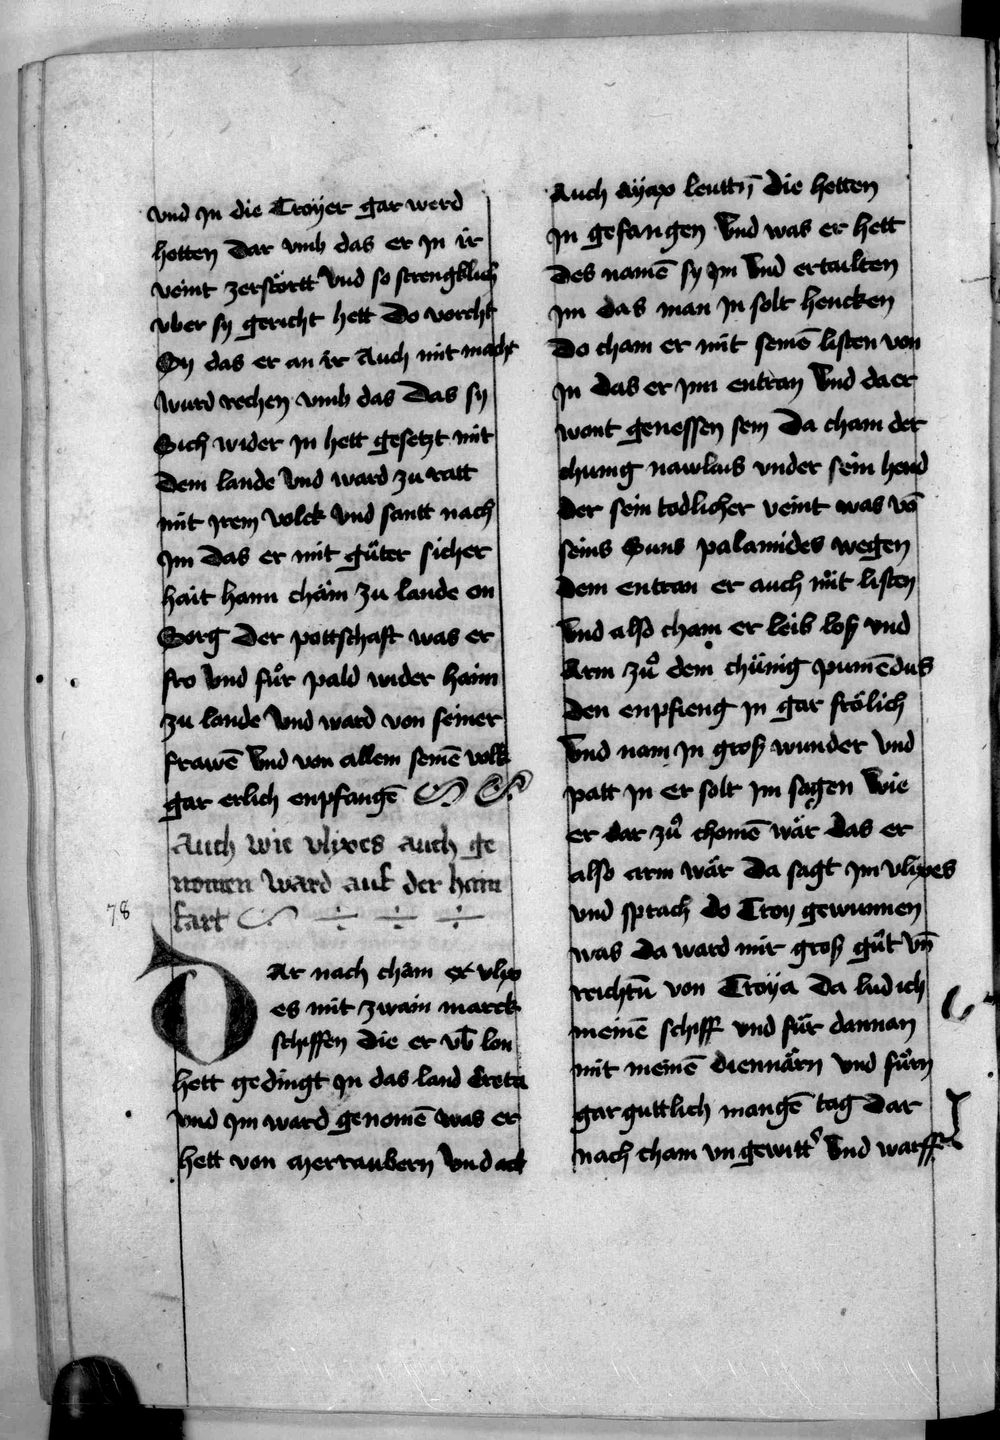 vnd jn die Troyer gar werd
hetten Dar vmb das er jn ir
veint zerstörtt Vnd so strengklich
vber sy gericht hett Do vorcht
Sy das er an ir Auch mit macht
wurd rechen vmb das Das sy
Sich wider jn hett gesetzt mit
Dem lande Vnd ward zu ratt
mit jrem Volck Vnd santt nach
jm das er mit gůter sicher
hait haim chäm zu lande on
Sorg Der pottschaft was er
fro Vnd fůr pald wider haim
zu lande Vnd ward von seiner
frawē Vnd von allem seinē volk
gar erlich enpfangē
Auch wie vlixes auch ge
nomen ward auf der haim
fart
78
DAr nach cham er vlyx
es mit zwain marck
schiffen die er vb̄ lon
hett gedingt jn das land Creta
vnd jm ward genomē was er
hett von merraubern Vnd ack
Auch ayax leuttn̄ die hetten
jn gefangen Vnd was er hett
des namē sy jm Vnd ertailten
jm das man jn solt hencken
Do cham er mit seinē listen von
jn das er jnn entran Vnd da er
want genessen sein Da cham der
chunig nawlus vnder sein hend
der sein todlicher veint was vō
seins Suns palamides wegen
dem entran er auch mit listen
Vnd also cham er leib loß vnd
Arm zů dem chünig pumēdus
den enpfieng jn gar frölich
Vnd nam jn groß wunder Vnd
patt jn er solt jm sagen Wie
er dar zů chomē wär das er
also arm wär Da sagt jm vlixes
vnd sprach do Troy gewunnen
was da ward mir groß gůt vn̄
reichtū von Troya Da lud ich
meinē schiff vnd für dannan
mit meinē diennärn vnd fůrn
gar guttlich mangē tag Dar
nach cham vn gewitt' Vnd warff